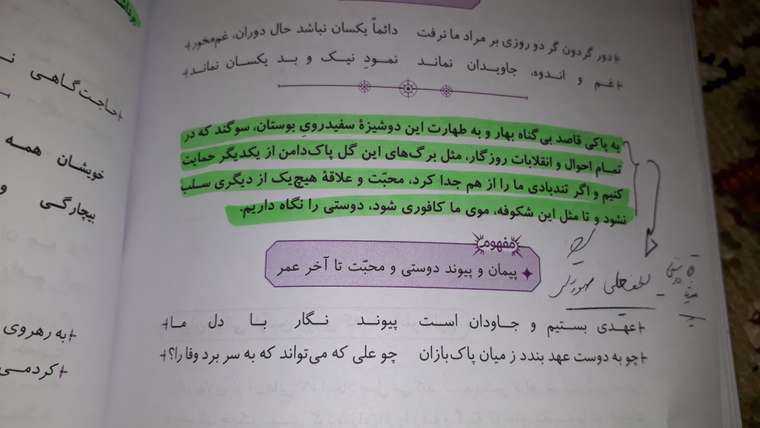 دور گردون گر دو روزی بر مراد ما نرفت دائماً یکسان نباشد حال دوران، غم‌مخور
غم و اندوه، جاویدان نماند نمودِ نیک و بد یکسان نماند
به پاکی قاصد بی‌گناه بهار و به طهارت این دوشیزهٔ سفیدرویِ بوستان، سوگند که در
تمام احوال و انقلابات روزگار، مثل برگ‌های این گل پاک‌دامن از یکدیگر حمایت
کنیم و اگر تندبادی ما را از هم جدا کرد، محبّت و علاقهٔ هیچ‌یک از دیگری سلب
نشود و تا مثل این شکوفه، موی ما کافوری شود، دوستی را نگاه داریم.
مفهوم
پیمان و پیوند دوستی و محبّت تا آخر عمر
عهدی بستیم و جاودان است پیوند نگار با دل ما
چو به دوست عهد بندد ز میان پاک‌بازان چو علی که می‌تواند که به سر برد وفا را؟
حاجت‌گاهی
خویشان همه
بیچارگی و
به رهروی
کردمی